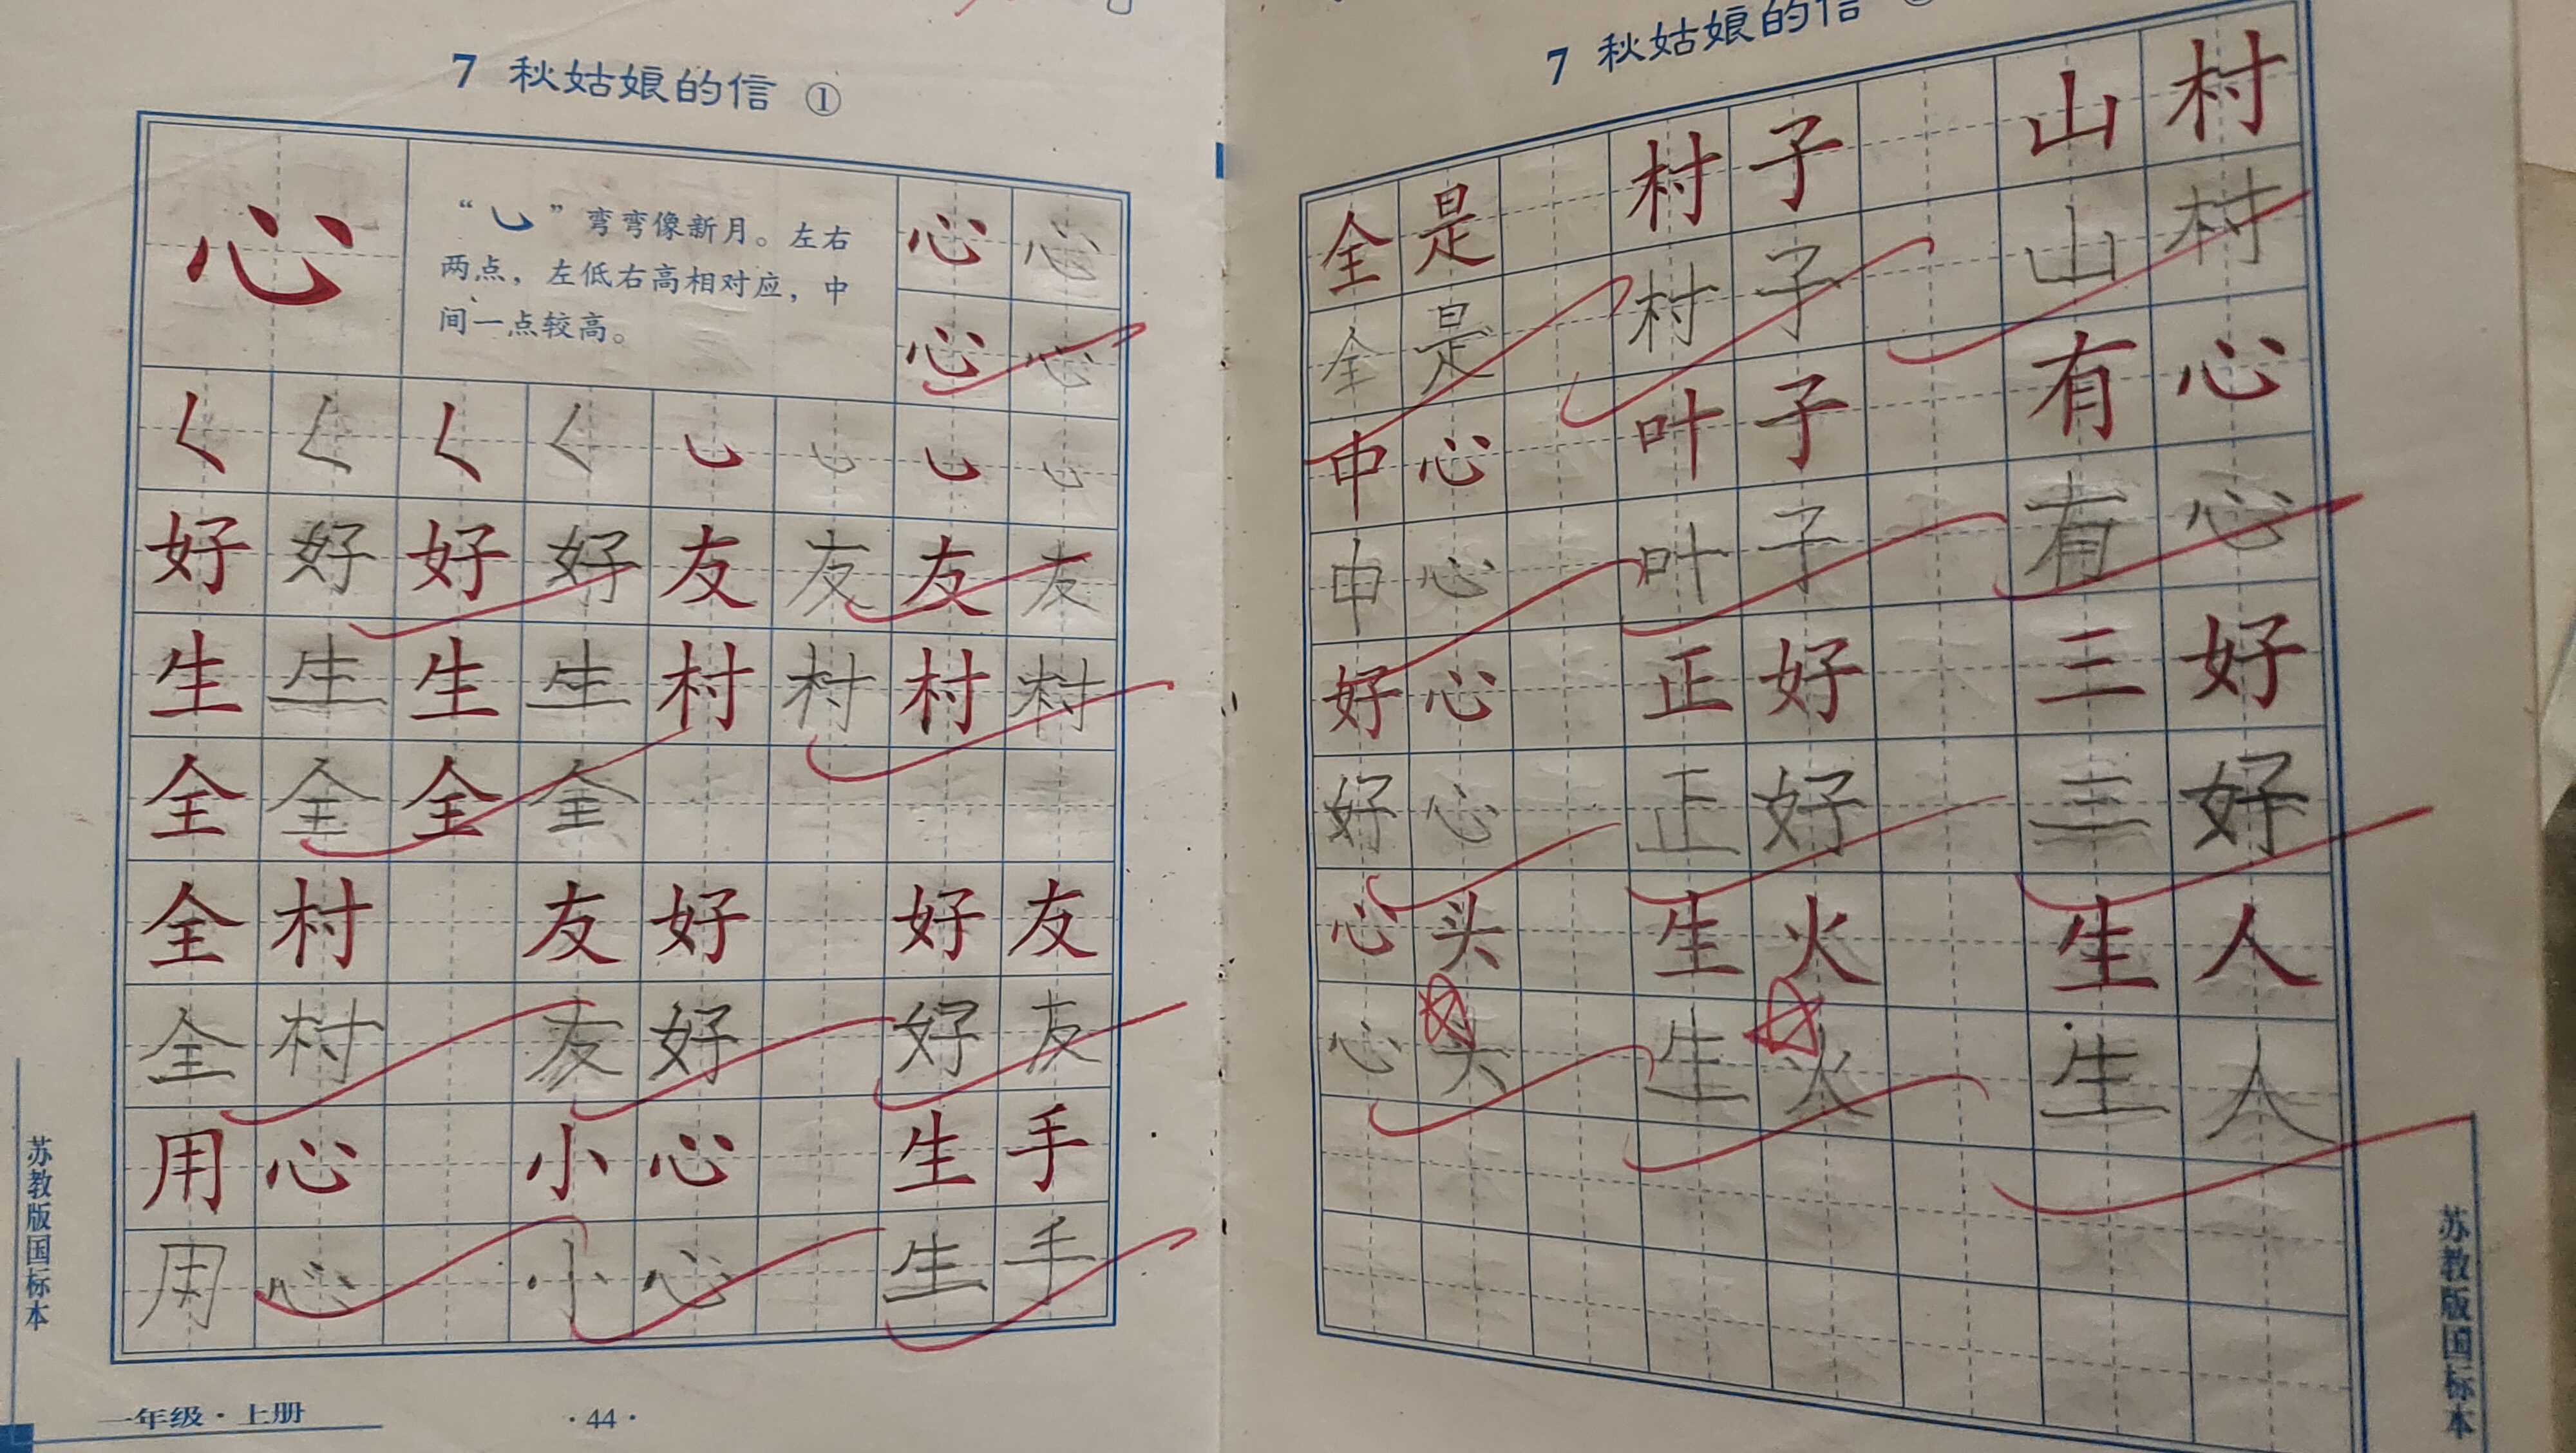 7 秋姑娘的信 ①
心 “㇃”弯弯像新月。左右 心 心
两点，左低右高相对应，中
间一点较高。 心 心
𡿨 𡿨 𡿨 𡿨 ㇃ ㇃ ㇃ ㇃
好 好 好 好 友 友 友 友
生 生 生 生 村 村 村 村
全 全 全 全
全 村 友 好 好 友
全 村 友 好 好 友
用 心 小 心 生 手
用 心 小 心 生 手
苏教版国标本
一年级·上册
·44·
7 秋姑娘的信
全 是 村 子 山 村
全 是 村 子 山 村
中 心 叶 子 有 心
申 心 叶 子 有 心
好 心 正 好 三 好
好 心 正 好 三 好
心 头 生 火 生 人
心 头 生 火 生 人
苏教版国标本